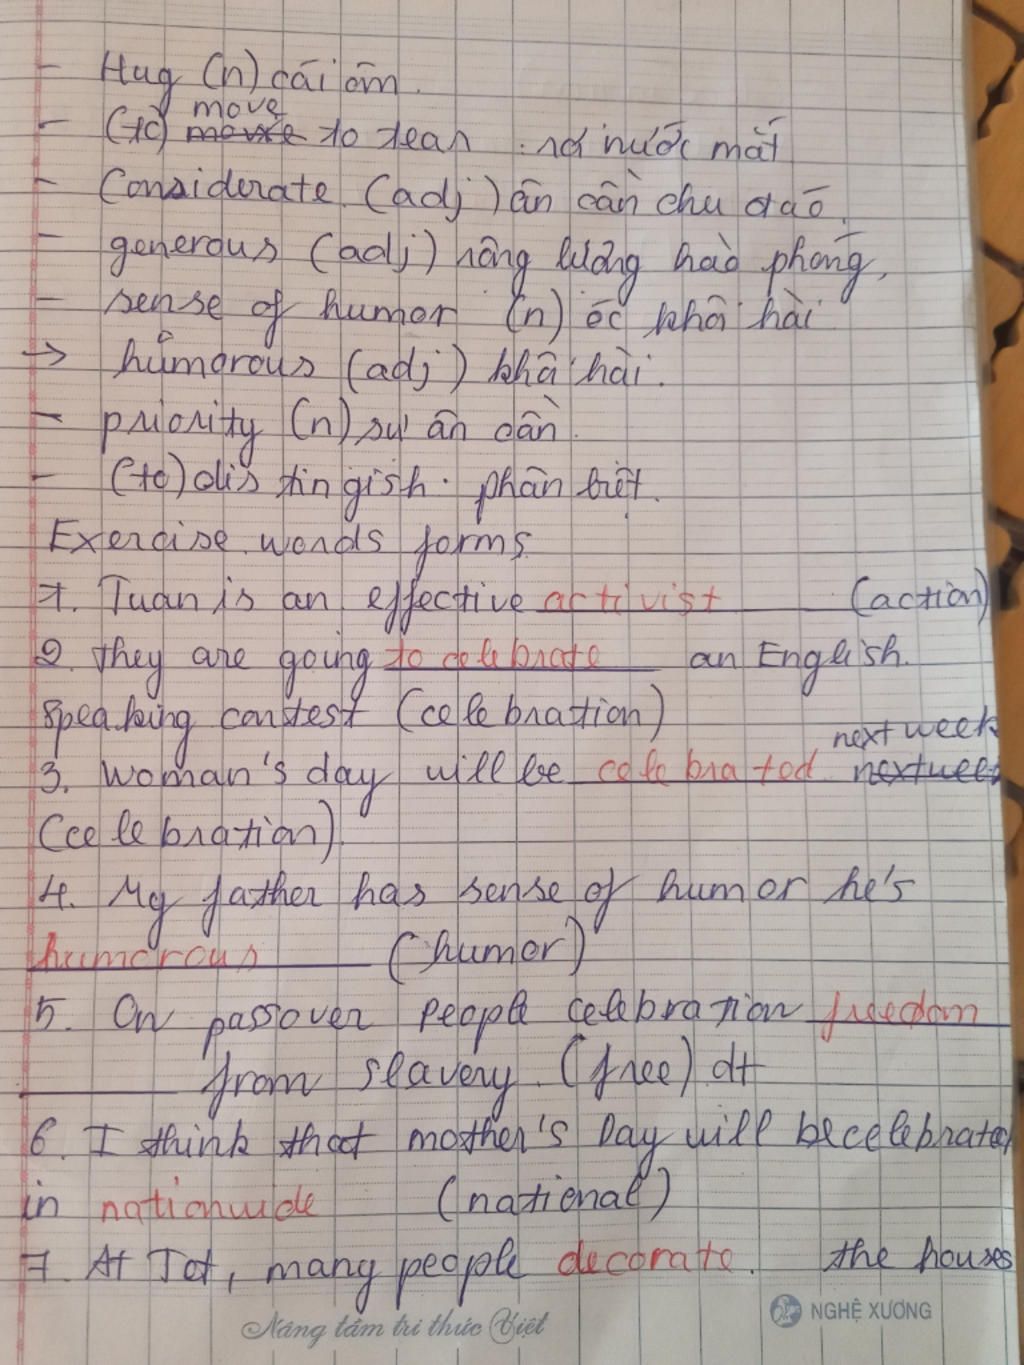 - Hug (n) cái ôm.
- (to) move to tear : rơi nước mắt
- Considerate (adj) ân cần chu đáo.
- generous (adj) rộng lượng hào phóng,
- sense of humor (n) óc khôi hài
→ humorous (adj) khôi hài.
- priority (n) sự ân cần.
- (to) distingish. phân biệt.
Exercise words forms
1. Tuan is an effective activist (action)
2. They are going to celebrate an English.
speaking contest (celebration)
next week
3. Woman's day will be celebrated
(celebration)
4. My father has sense of humor he's
humorous (humor)
5. On passover people celebration freedom
from slavery. (free) dt
6. I think that mother's Day will be celebrated
in nationwide (national)
7. At Tet, many people decorate. the houses
Nâng tầm tri thức Việt
NGHỆ XƯƠNG